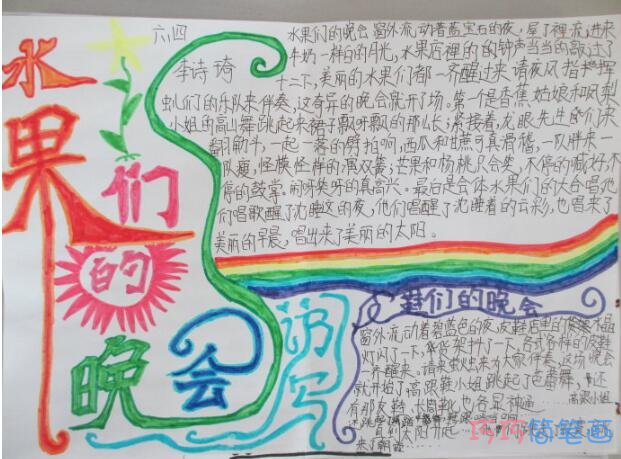 水果们的晚会
六.四
李诗琦
水果们的晚会 窗外流动着蓝宝石的夜,屋子裡流进来
牛奶一样白的月光,水果店裡的的钟声当当的敲过了
十二下,美丽的水果们都一齐醒过来 请夜风指挥
虫儿们的乐队来伴奏,这奇异的晚会就开了场。第一个是香蕉姑娘和凤梨
小姐的高山舞跳起来裙子飘呀飘的那么长;紧接着,龙眼先生们来
翻筋斗,一起一落的劈拍响,西瓜和甘蔗可真滑稽,一队胖来一
队瘦,怪模怪样的演双簧;芒果和杨桃只会笑,不停的喊好不
停的鼓掌,闹呀笑呀的真高兴。最后是全体水果们的大合唱他
们唱歌醒了沈睡这的夜,他们唱醒了沈睡着的云彩,也唱来了
美丽的早晨、唱出来了美丽的太阳。
仿写
鞋们的晚会
窗外流动着碧蓝色的夜,皮鞋店里的
灯闪了下,各式各样的皮鞋
一齐醒来。请来蚊虫来为大家伴奏。这场晚会
就开始了高跟鞋小姐跳起了芭蕾舞,还
高跟小姐
巧巧简笔画